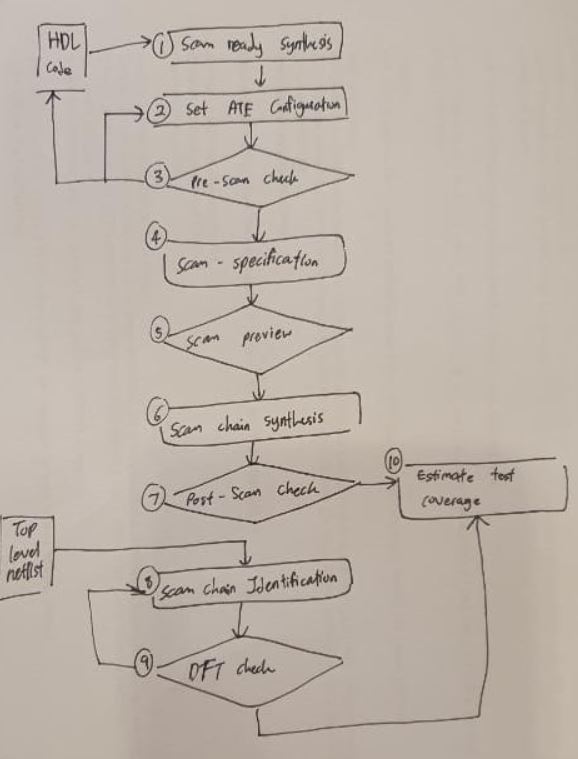 HDL
Code
① Scan ready synthesis
② Set ATE Configuration
③ Pre-scan check
④
Scan - specification
⑤ Scan preview
⑥
Scan chain synthesis
⑦ Post-Scan check
⑩
Estimate test
coverage
Top
level
netlist
⑧ Scan chain Identification
⑨ DFT check